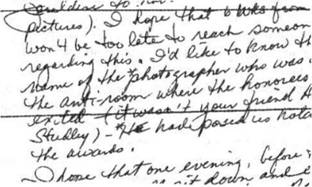 pictures). I hope that 6 wks from
won't be too late to reach someon
regarding this. I'd like to know th
name of the photographer who was
the anti-room where the honorees
(it wasn't your friend H
Studley) - He had posed us hold
the awards.
I hope that one evening, before
sit down and